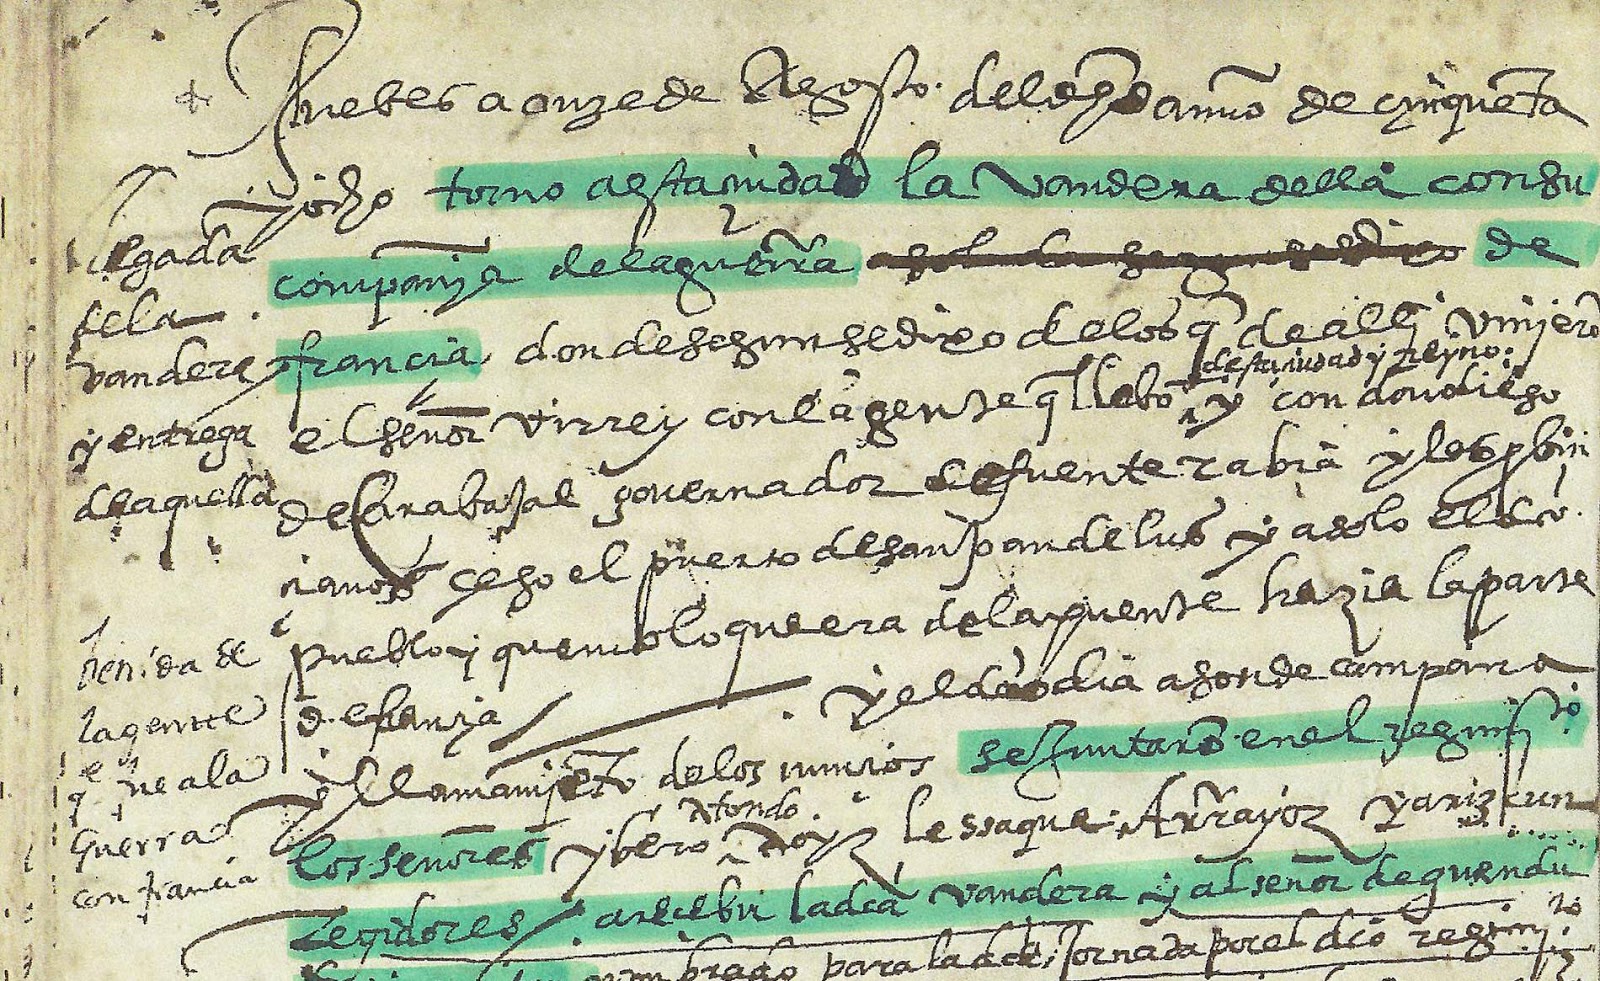 Juebes a onze de Agosto del dho anno de cinquenta
y ocho torno a esta ciudad la vandera de la con su
compannya de la guerra de
francia donde segun se dixo de los q de alli vinyero
desta ciudad y reyno
el señor virrey con la gente q llebo y con don diego
de Carabajal governador de fuenterabia y les probin
cianos gano el puerto de san Joan de lus y asolo el dho
pueblo y quemo lo que era de la puente hazia la parte
de francia y el dicho dia a son de campana
y llamamyento de los nuncios se Juntaro en el regimto
Atondo
los señores ybero Roiz lessaque Arrayoz y ariz cun
Regidores a recebir la dca vandera y al señor de guendu
nombrado para la dcha Jornada por el dco regimto
llegada
de la
vandera
y entrega
de aquella
venida de
la gente
que a la
Guerra
con francia